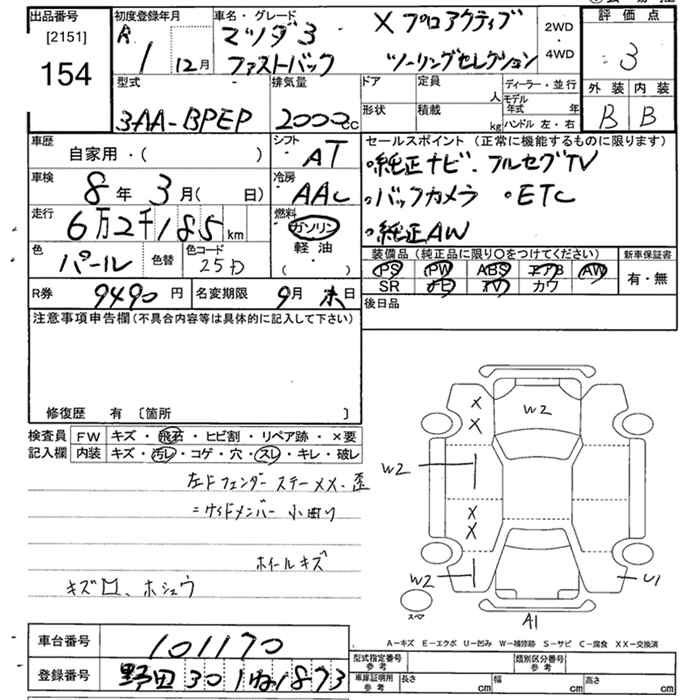 出品番号 初度登録年月 車名・グレード 評価点
[2151] R1 12月 マツダ3 X プロアクティブ 2WD・4WD 3
154 ファストバック ツーリングセレクション
型式 排気量 ドア 定員 人 ディーラー・並行 外装 内装
3AA-BPEP 2000cc 形状 積載 kg モデル年式 年 B B
ハンドル 左・右
車歴 シフト セールスポイント (正常に機能するものに限ります)
自家用・( ) AT ・純正ナビ、フルセグTV
車検 冷房 ・バックカメラ ・ETC
8年 3月( 日) AAC ・純正AW
走行 燃料
6万2千185km ガソリン
軽油
( )
色 色替 色コード 装備品 (純正品に限り○をつけてください) 新車保証書
パール 25D PS PW ABS エアB AW 有・無
SR ナビ TV カワ
R券 9490円 名変期限 9月末日 後日品
注意事項申告欄(不具合内容等は具体的に記入して下さい)
修復歴 有 [箇所 ]
検査員 FW キズ・飛石・ヒビ割・リペア跡・×要
記入欄 内装 キズ・汚レ・コゲ・穴・スレ・キレ・破レ
左Fフェンダー ステーXX、歪
=サイドメンバー 小曲り
ホイールキズ
キズ ホシュウ
X X W2
W2
X X
W2 U1
スペア A1
A-キズ E-エクボ U-凹み W-補修跡 S-サビ C-腐食 XX-交換済
車台番号 101170 型式指定番号 参考 類別区分番号 参考
登録番号 野田 301 1873 車庫証明用 参考 長さ cm 幅 cm 高さ cm